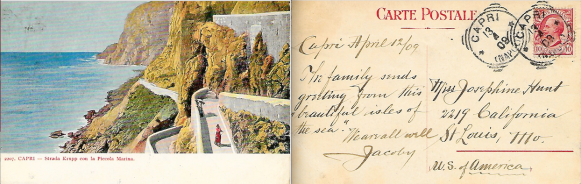 2207. CAPRI – Strada Krupp con la Piccola Marina.
CARTE POSTALE
CAPRI
09
(NAPOLI)
CAPRI
09
Capri April 12/09
The family sends
greeting from this
beautiful isles of
the sea. We are all well
Jacoby
Miss Josephine Hunt
2219 California
St Louis, Mo.
U.S. of America